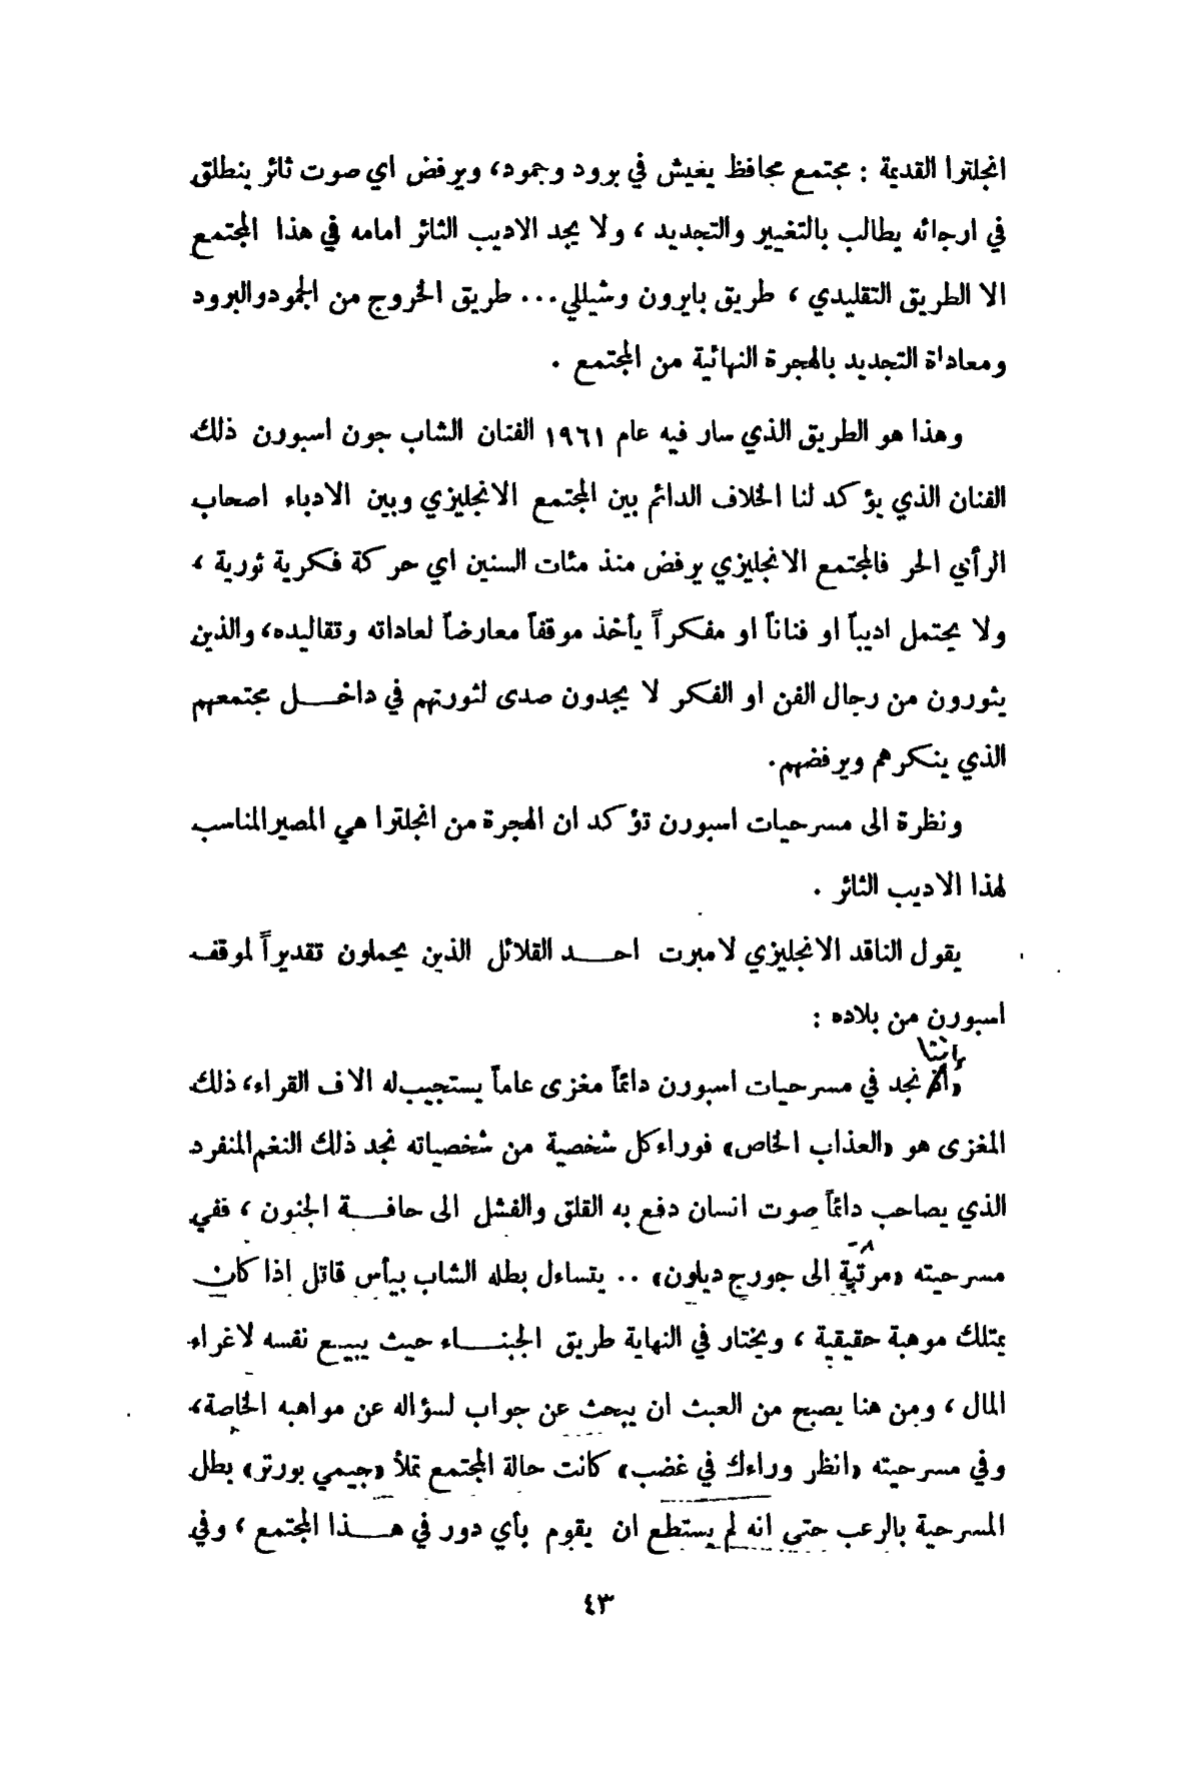 انجلترا القديمة : مجتمع محافظ يعيش في برود وجمود، ويرفض اي صوت ثائر ينطلق
في ارجائه يطالب بالتغيير والتجديد ، ولا يجد الاديب الثائر امامه في هذا المجتمع
الا الطريق التقليدي ، طريق بايرون وشيللي... طريق الخروج من الجمود والبرود
ومعاداة التجديد بالهجرة النهائية من المجتمع .
وهذا هو الطريق الذي سار فيه عام ١٩٦١ الفنان الشاب جون اسبورن ذلك
الفنان الذي يؤكد لنا الخلاف الدائم بين المجتمع الانجليزي وبين الادباء اصحاب
الرأي الحر فالمجتمع الانجليزي يرفض منذ مئات السنين اي حركة فكرية ثورية ،
ولا يحتمل اديباً او فناناً او مفكراً يأخذ موقفاً معارضاً لعاداته وتقاليده، والذين
يثورون من رجال الفن او الفكر لا يجدون صدى لثورتهم في داخل مجتمعهم
الذي ينكرهم ويرفضهم.
ونظرة الى مسرحيات اسبورن تؤكد ان الهجرة من انجلترا هي المصير المناسب
لهذا الاديب الثائر .
يقول الناقد الانجليزي لامبرت احد القلائل الذين يحملون تقديراً لموقف
اسبورن من بلاده :
إننا
نجد في مسرحيات اسبورن دائماً مغزى عاماً يستجيب له الاف القراء، ذلك
المغزى هو «العذاب الخاص» فوراء كل شخصية من شخصياته نجد ذلك النغم المنفرد
الذي يصاحب دائماً صوت انسان دفع به القلق والفشل الى حافة الجنون ، ففي
مسرحيته «مرثية الى جورج ديلون» .. يتساءل بطله الشاب بيأس قاتل اذا كان
يمتلك موهبة حقيقية ، ويختار في النهاية طريق الجبناء حيث يبيع نفسه لاغراء
المال ، ومن هنا يصبح من العبث ان يبحث عن جواب لسؤاله عن مواهبه الخاصة،
وفي مسرحيته «انظر وراءك في غضب» كانت حالة المجتمع تملأ «جيمي بورتر» بطل
المسرحية بالرعب حتى انه لم يستطع ان يقوم بأي دور في هذا المجتمع ، وفي
٤٣